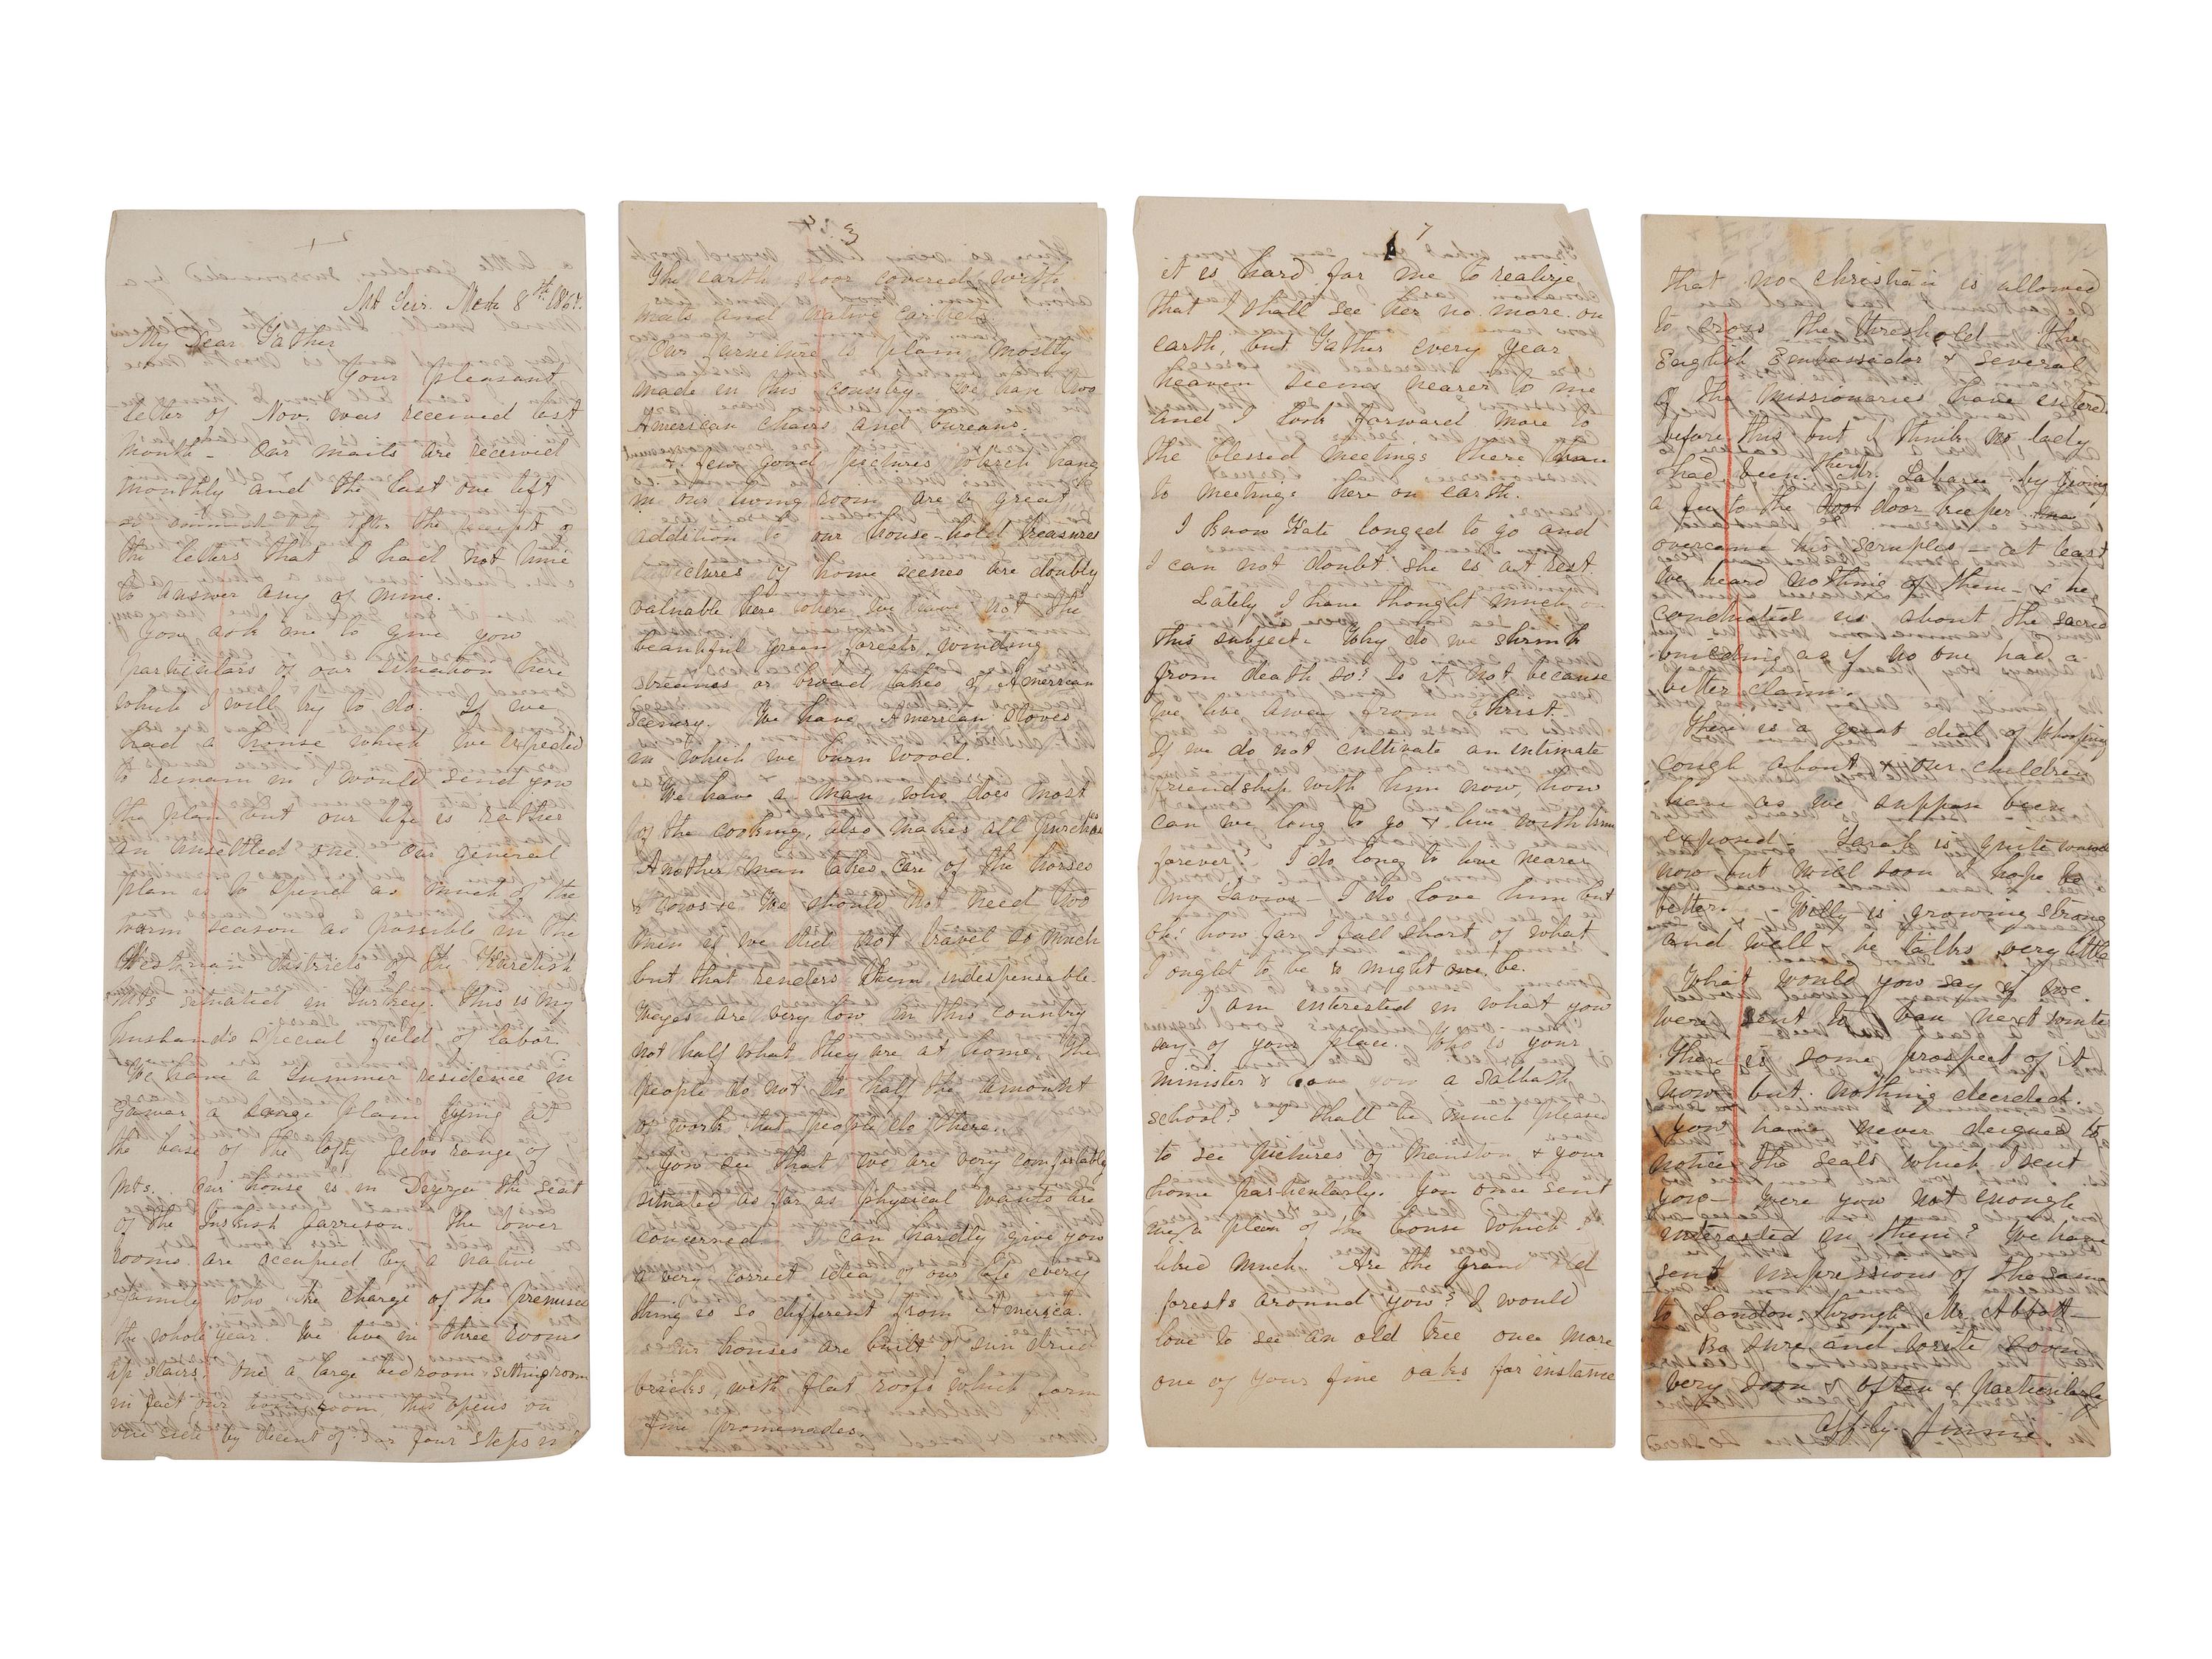 Mt Seir. Mch 8th 1867.
My Dear Father
Your pleasant
letter of Nov. was received last
month - Our mails are received
monthly and the last one left
so immediately after the receipt of
the letters that I had not time
to answer any of mine.
You ask me to give you
particulars of our situation here
which I will try to do. If we
had a house which we expected
to remain in I would send you
the plan but our life is rather
an unsettled one. Our general
plan is to spend as much of the
warm season as possible in the
districts of the
Mts situated in Turkey. This is my
husband's special field of labor.
We have a Summer residence in
Gawar a large plain lying at
the base of the lofty Jelus range of
Mts. Our house is in the seat
of the Turkish garrison. The lower
rooms are occupied by a native
family who the charge of the premises
the whole year. We live in three rooms
up stairs, one a large bedroom, sitting room
in fact our room, this opens on
one side by decent of 3 or four steps in
3
The earth floor covered with
mats and native carpets
Our furniture is plain, mostly
made in this country. We have two
American chairs and bureaus.
A few good pictures which hang
in our living room are a great
addition to our house-hold treasures
pictures of home scenes are doubly
valuable here where we have not the
beautiful green forests, winding
streams or broad lakes of American
scenery. We have American stoves
in which we burn wood.
We have a man who does most
of the cooking, also makes all purchases
Another man takes care of the horses
We should not need two
men if we did not travel so much
but that renders them indespensable.
Wages are very low in this country
not half what they are at home. The
people do not do half the amount
of work that people do there.
You see that we are very comfortably
situated as far as physical wants are
concerned. I can hardly give you
a very correct idea of our life every
thing is so different from America.
Our houses are built of sun dried
bricks, with flat roofs which form
fine promenades.
7
it is hard for me to realize
that I shall see her no more on
earth, but Father every year
heaven seems nearer to me
and I look forward more to
the blessed meetings there than
to meetings here on earth.
I know Kate longed to go and
I can not doubt she is at rest.
Lately I have thought much on
this subject. Why do we shrink
from death so? Is it not because
we live away from Christ.
If we do not cultivate an intimate
friendship with him now, how
can we long to go & live with him
forever? I do long to live nearer
my Savior - I do love him but
oh! how far I fall short of what
I ought to be & might be.
I am interested in what you
say of your place. Who is your
minister & have you a Sabbath
school? I shall be much pleased
to see pictures of Manston & your
home particularly. You once sent
me a plan of the house which I
liked much. Are the grand old
forests around you? I would
love to see an old tree once more
one of your fine oaks for instance
that no christian is allowed
to cross the threshold - The
English Embassador & several
of the missionaries have entered
before this but I think no lady
had been there. Mr. Labaree by giving
a fee to the door keeper
overcame his scruples - at least
we heard nothing of them - & he
conducted us about the sacred
building as if no one had a
better claim.
There is a great deal of Whooping
cough about & our children
have as we suppose been
exposed - Sarah is quite unwell
now but will soon I hope be
better. - Willy is growing strong
and well - he talks very little
What would you say if we
were sent to Van next winter
There is some prospect of it
now but nothing decided.
You have never deigned to
notice the seals which I sent
you - were you not enough
interested in them? We have
sent impressions of the same
to London through Mr. Abbott -
Be sure and write soon
very soon & often & particularly
Aff-ly. Jennie